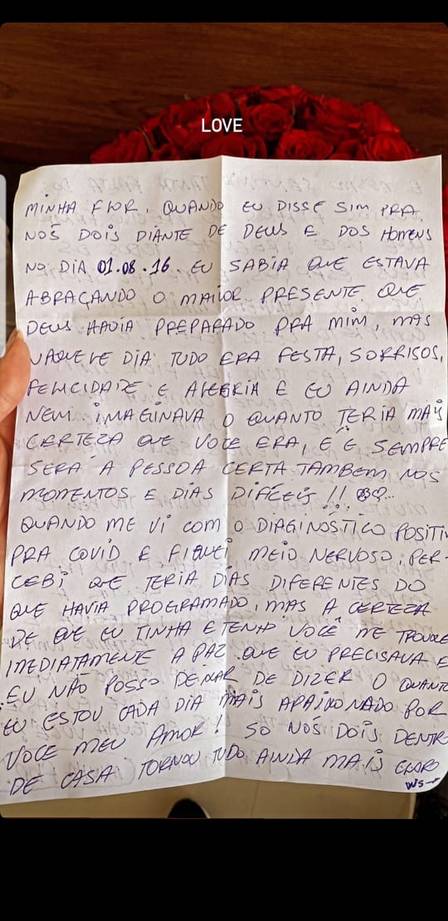 LOVE
MINHA FLOR, QUANDO EU DISSE SIM PRA
NÓS DOIS DIANTE DE DEUS E DOS HOMENS
NO DIA 01.08.16. EU SABIA QUE ESTAVA
ABRAÇANDO O MAIOR PRESENTE QUE
DEUS HAVIA PREPARADO PRA MIM, MAS
NAQUELE DIA TUDO ERA FESTA, SORRISOS,
FELICIDADE E ALEGRIA E EU AINDA
NEM IMAGINAVA O QUANTO TERIA MAIS
CERTEZA QUE VOCÊ ERA, E É SEMPRE
SERÁ A PESSOA CERTA TAMBEM NOS
MOMENTOS E DIAS DIFÍCEIS!!
QUANDO ME VI COM O DIAGINOSTICO POSITIV
PRA COVID E FIQUEI MEIO NERVOSO, PER-
CEBI QUE TERIA DIAS DIFERENTES DO
QUE HAVIA PROGRAMADO, MAS A CERTEZA
DE QUE EU TINHA E TENHO VOCÊ ME TROUXE
IMEDIATAMENTE A PAZ QUE EU PRECISAVA E
EU NÃO POSSO DEIXAR DE DIZER O QUANTO
EU ESTOU CADA DIA MAIS APAIXONADO POR
VOCÊ MEU AMOR! SO NÓS DOIS DENTR
DE CASA TORNOU TUDO AINDA MAIS CLARO